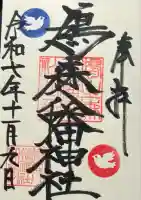 奉拝
鳩森八幡神社
令和六年十一月九日